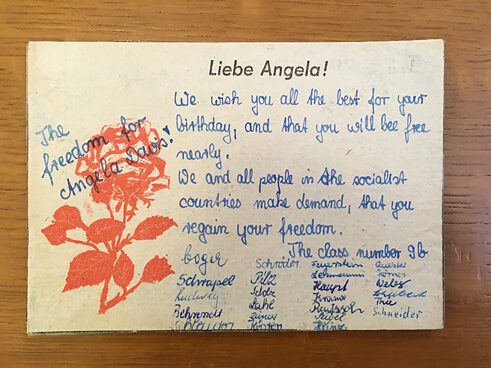 Liebe Angela!
The
freedom for
Angela Davis!
We wish you all the best for your
birthday, and that you will bee free
nearly.
We and all people in the socialist
countries make demand, that you
regain your freedom.
The class number 9b
Boger
Schrapel
Ludwig
Behrendt
Schröder
Pilz
Feuerstein
Lehmann
Haupt
Krämer
Körner
Weber
Schneider